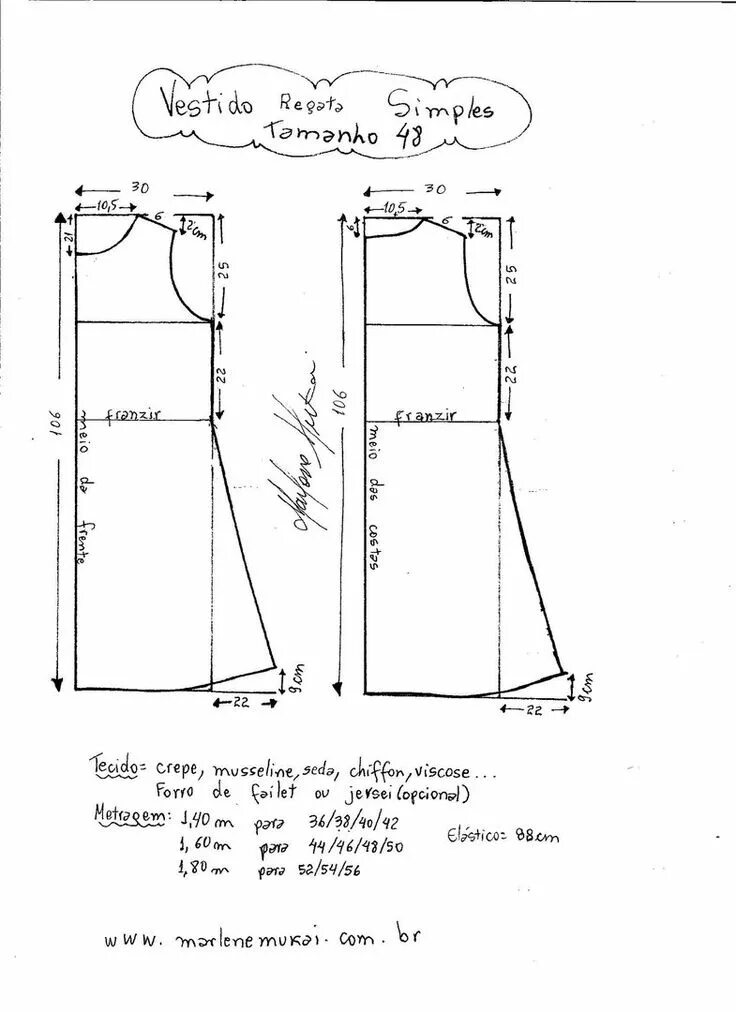 Vestido Regata Simples
Tamanho 48
30
10,5
6
2cm
12
25
22
106
franzir
meio da frente
22
9cm
30
10,5
6
2cm
6
25
22
106
franzir
meio das costas
22
9cm
Tecido= crepe, musseline, seda, chiffon, viscose...
Forro de failet ou jersei (opcional)
Metragem: 1,40m para 36/38/40/42
1,60m para 44/46/48/50
1,80m para 52/54/56
Elástico= 88cm
www.marlenemukai.com.br